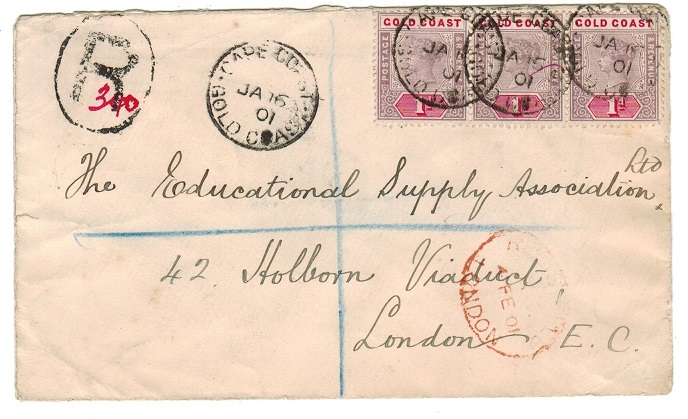 R
340
CAPE COAST
JA 16
01
GOLD COAST
GOLD COAST GOLD COAST GOLD COAST
POSTAGE
JA 16
01
JA 16
01
JA 16
01
1D 1D
The Educational Supply Association Ltd
42. Holborn Viaduct,
London, E. C.
4 FE 01
LONDON